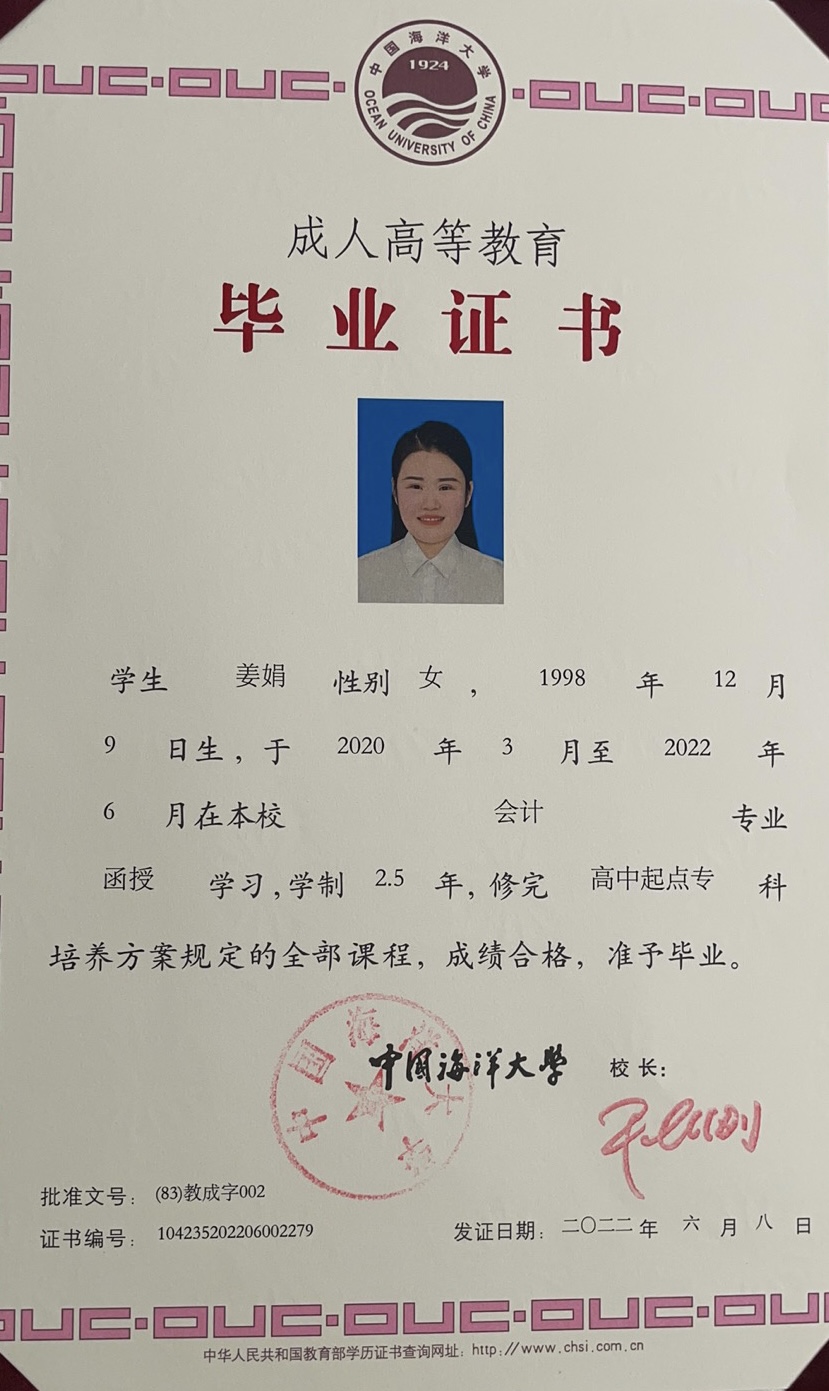 中国海洋大学
1924
OCEAN UNIVERSITY OF CHINA
OUC·OUC· ·OUC·OU
成人高等教育
毕业证书
学生 姜娟 性别 女 ， 1998 年 12 月
9 日生，于 2020 年 3 月至 2022 年
6 月在本校 会计 专业
函授 学习，学制 2.5 年，修完 高中起点专 科
培养方案规定的全部课程，成绩合格，准予毕业。
中国海洋大学
中国海洋大学 校长：
批准文号： (83)教成字002
证书编号： 104235202206002279 发证日期：二〇二二年 六 月 八 日
OUC·OUC·OUC·OUC·OU
中华人民共和国教育部学历证书查询网址：http://www.chsi.com.cn